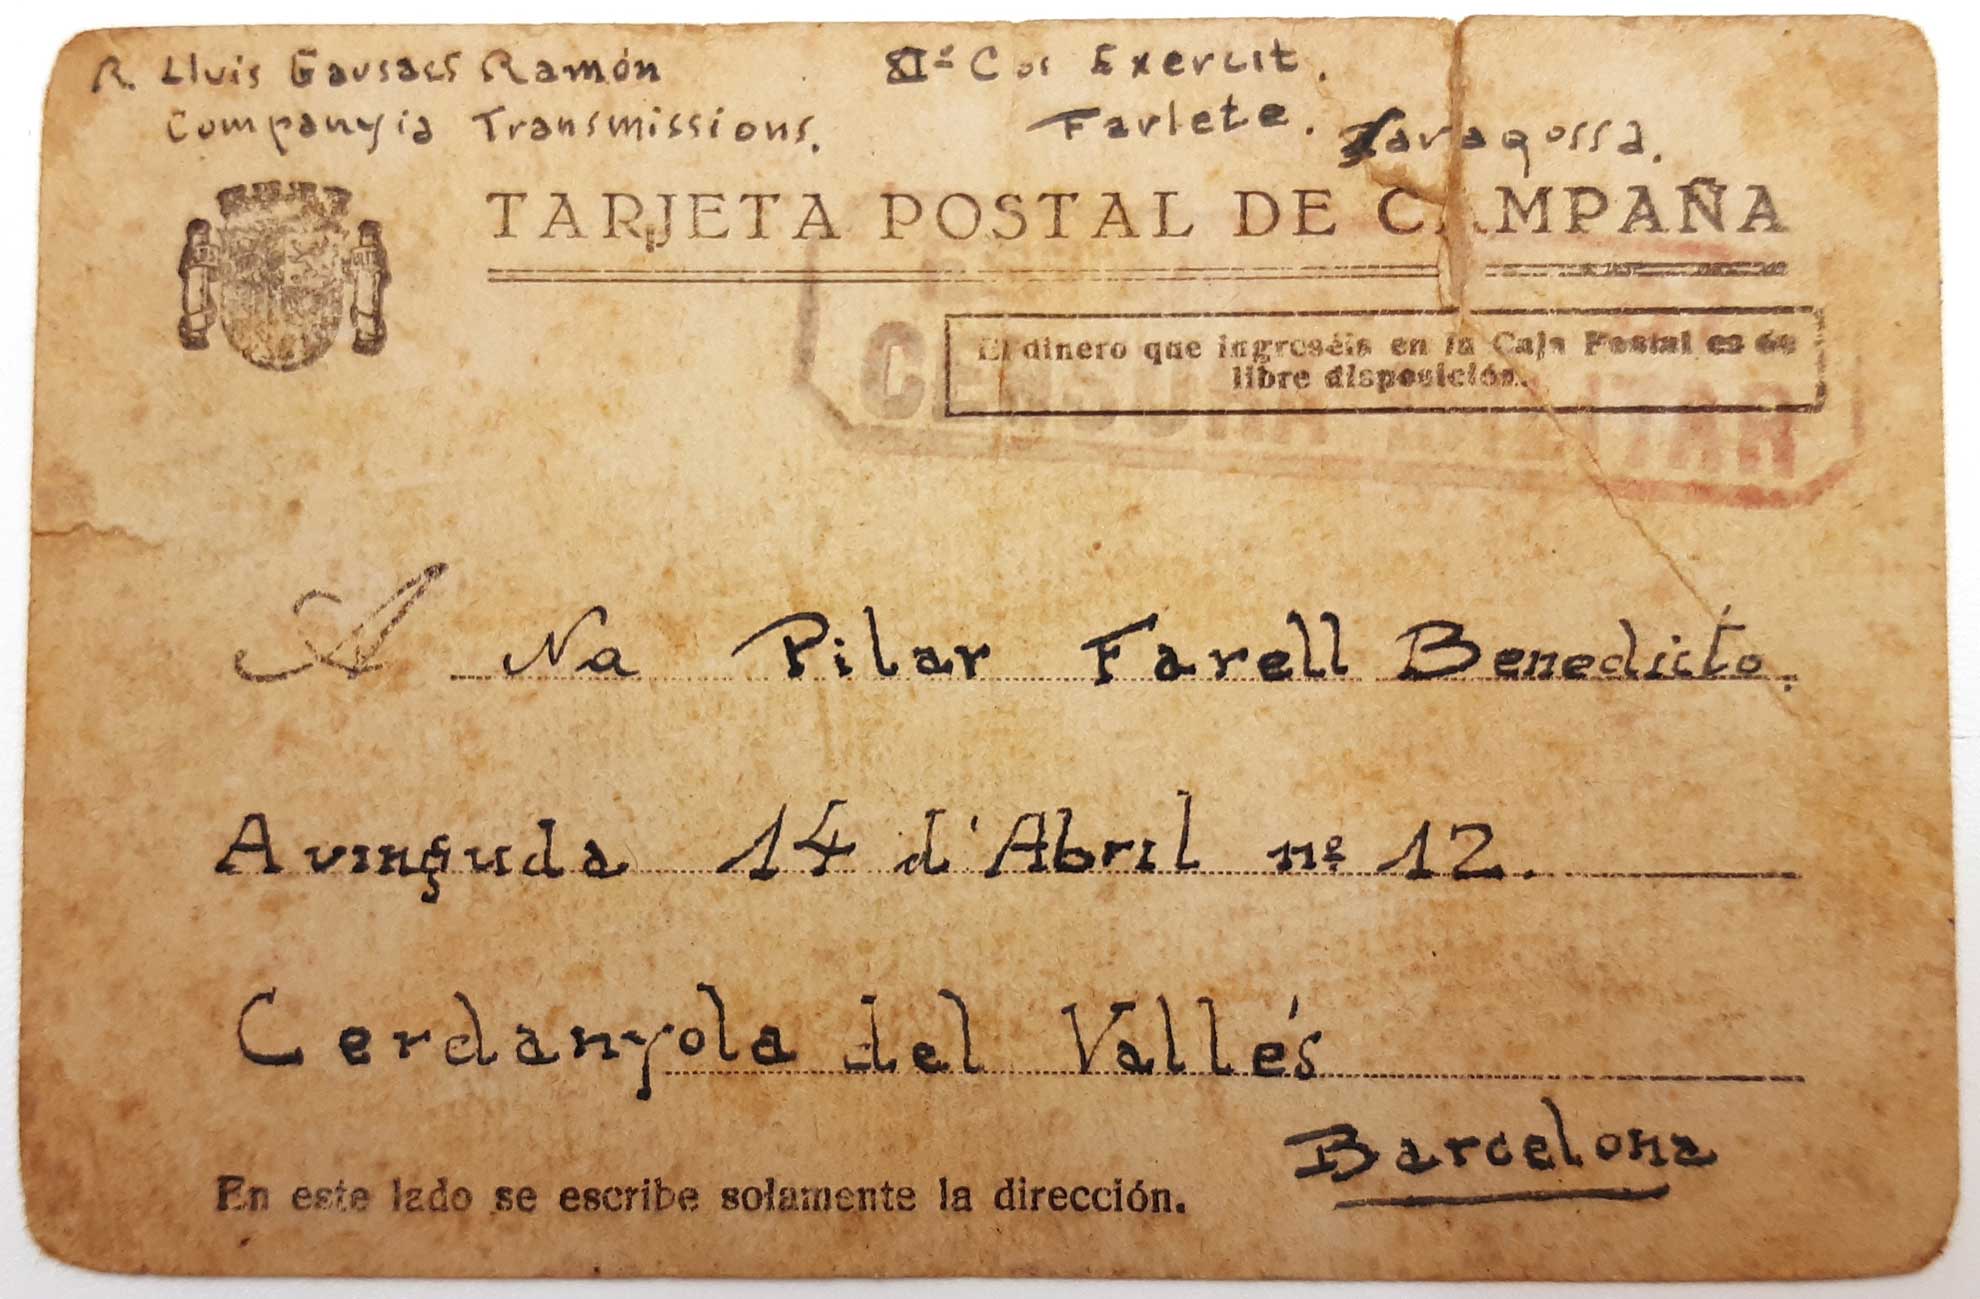 R. Lluis Gausachs Ramón
Companyia Transmissions.
XIè Cos Exercit.
Farlete. Zaragossa.
TARJETA POSTAL DE CAMPAÑA
El dinero que ingreséis en la Caja Postal es de
libre disposición.
CENSURA MILITAR
A Na Pilar Farell Benedicto.
Avinguda 14 d'Abril nº 12.
Cerdanyola del Vallés
Barcelona
En este lado se escribe solamente la dirección.